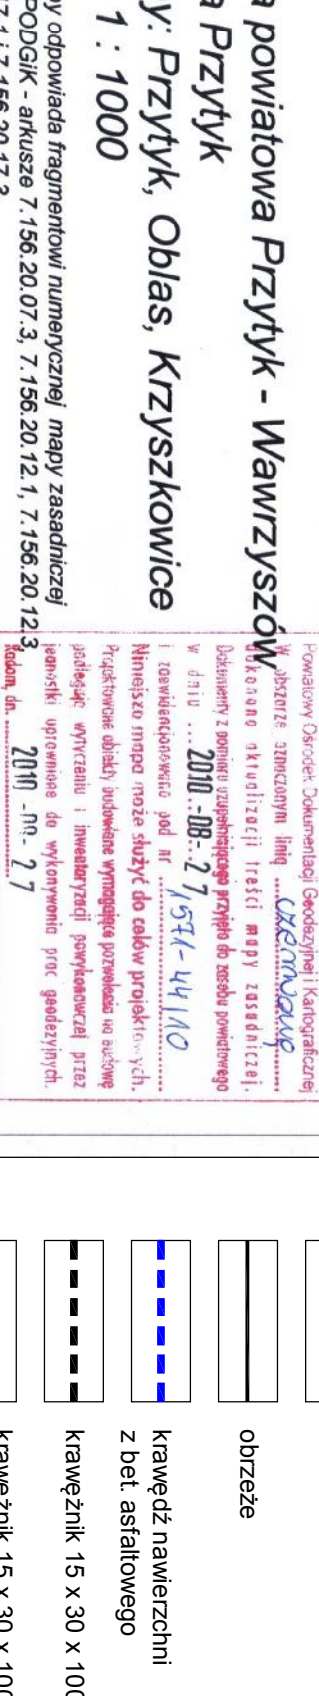 a powiatowa Przytyk - Wawrzyszów
a Przytyk
y: Przytyk, Oblas, Krzyszkowice
1 : 1000
y odpowiada fragmentowi numerycznej mapy zasadniczej
PODGiK - arkusze 7.156.20.07.3, 7.156.20.12.1, 7.156.20.12.3,
7.1 i 7.156.20.17.2
Powiatowy Ośrodek Dokumentacji Geodezyjnej i Kartograficznej
W obszarze oznaczonym linią czerwoną
dokonano aktualizacji treści mapy zasadniczej.
Dokumenty z pomiaru uzupełniającego przyjęto do zasobu powiatowego
w dniu 2010 -08- 27
i zaewidencjonowano pod nr 1571-44/10
Niniejsza mapa może służyć do celów projektowych.
Projektowane obiekty budowlane wymagające pozwolenia na budowę
podlegają wytyczeniu i inwentaryzacji powykonawczej przez
jednostki uprawnione do wykonywania prac geodezyjnych.
Radom, dn. 2010 -08- 27
obrzeże
krawędź nawierzchni
z bet. asfaltowego
krawężnik 15 x 30 x 100
krawężnik 15 x 30 x 100